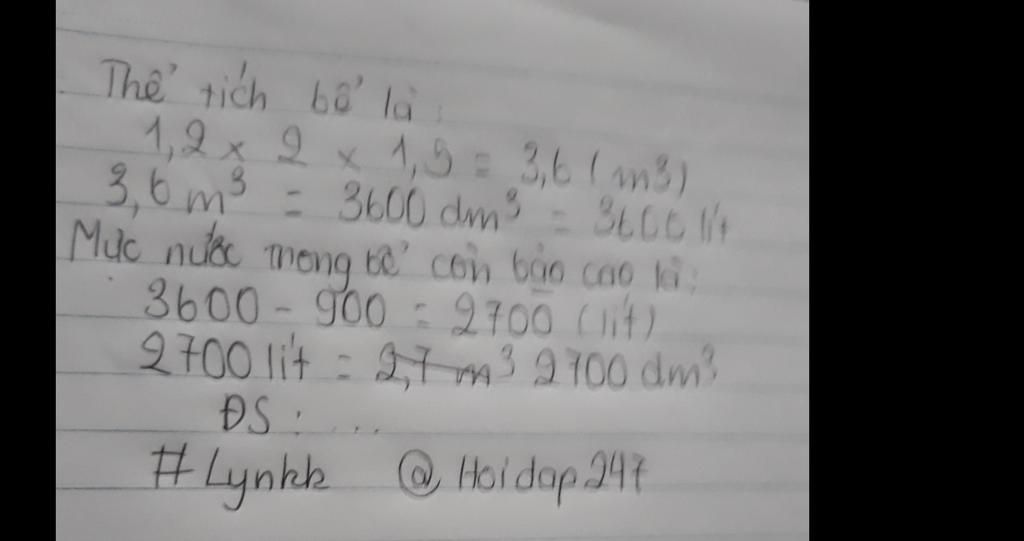 Thể tích bể là:
1,2 x 2 x 1,5 = 3,6 (m3)
3,6 m³ = 3600 dm³ = 3600 lít
Mực nước trong bể còn bão cao là:
3600 - 900 = 2700 (lít)
2700 lít = 2,7 m³ 2700 dm³
ĐS: ...
#Lynkk @Hoidap247